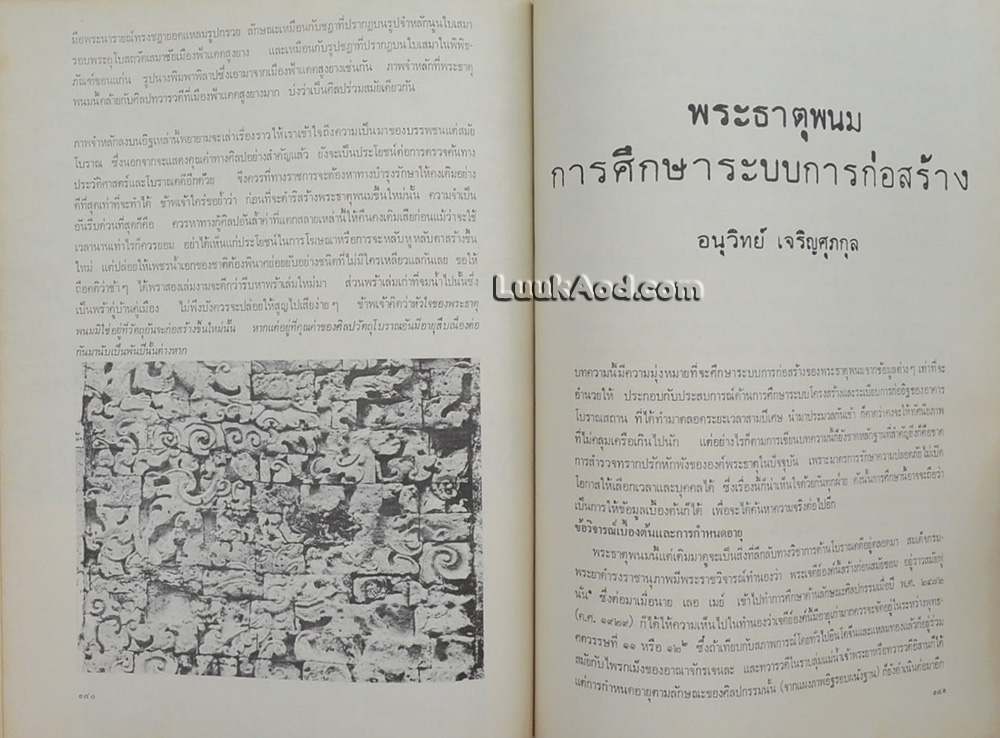 มือพระนารายณ์ทรงชฎายอดแหลมรูปกรวย ลักษณะเหมือนกับชฎาที่ปรากฏบนรูปจำหลักนูนใบเสมา
รอบพระอุโบสถวัดเสมาชัยเมืองฟ้าแดดสูงยาง และเหมือนกับรูปชฎาที่ปรากฏบนใบเสมาในพิพิธ-
ภัณฑ์ขอนแก่น รูปนางพิมพาพิลาปซึ่งเอามาจากเมืองฟ้าแดดสูงยางเช่นกัน ภาพจำหลักที่พระธาตุ
พนมนี้คล้ายกับศิลปทวารวดีที่เมืองฟ้าแดดสูงยางมาก บ่งว่าเป็นศิลปร่วมสมัยเดียวกัน
ภาพจำหลักลงบนอิฐเหล่านี้พยายามจะเล่าเรื่องราวให้เราเข้าใจถึงความเป็นมาของบรรพชนแต่สมัย
โบราณ ซึ่งนอกจากจะแสดงคุณค่าทางศิลปอย่างสำคัญแล้ว ยังจะเป็นประโยชน์ต่อการตรวจค้นทาง
ประวัติศาสตร์และโบราณคดีอีกด้วย จึงควรที่ทางราชการจะต้องหาทางบำรุงรักษาให้คงเดิมอย่าง
ดีที่สุดเท่าที่จะทำได้ ข้าพเจ้าใคร่ขอย้ำว่า ก่อนที่จะดำริสร้างพระธาตุพนมขึ้นใหม่นั้น ความจำเป็น
อันรีบด่วนที่สุดก็คือ ควรหาทางกู้ศิลปอันล้ำค่าที่แตกสลายเหล่านี้ให้คืนคงเดิมเสียก่อนแม้ว่าจะใช้
เวลานานเท่าไรก็ควรยอม อย่าได้เห็นแก่ประโยชน์ในการโฆษณาหรือการจะหลับหูหลับตาสร้างขึ้น
ใหม่ แต่ปล่อยให้เพชรน้ำเอกของชาติต้องพินาศย่อยยับอย่างชนิดที่ไม่มีใครเหลียวแลกันเลย ขอให้
ถือคติว่าช้าๆ ได้พร้าสองเล่มงามจะดีกว่ารีบหาพร้าเล่มใหม่มา ส่วนพร้าเล่มเก่าที่จมน้ำไปนั้นซึ่ง
เป็นพร้าคู่บ้านคู่เมือง ไม่พึงบังควรจะปล่อยให้สูญไปเสียง่ายๆ ข้าพเจ้าคิดว่าหัวใจของพระธาตุ
พนมมิใช่อยู่ที่วัตถุอันจะก่อสร้างขึ้นใหม่นั้น หากแต่อยู่ที่คุณค่าของศิลปวัตถุโบราณอันมีอายุสืบเนื่องต่อ
กันมานับเป็นพันปีนั้นต่างหาก
๑๔๐
พระธาตุพนม
การศึกษาระบบการก่อสร้าง
อนุวิทย์ เจริญศุภกุล
LuukAod.com
บทความนี้มีความมุ่งหมายที่จะศึกษาระบบการก่อสร้างของพระธาตุพนมจากข้อมูลต่างๆ เท่าที่จะ
อำนวยให้ ประกอบกับประสบการณ์ด้านการศึกษาระบบโครงสร้างและระเบียบการก่ออิฐของอาคาร
โบราณสถาน ที่ได้ทำมาตลอดระยะเวลาสามปีเศษ นำมาประมวลกันเข้า ก็คาดว่าคงจะให้ทัศนียภาพ
ที่ไม่คลุมเครือเกินไปนัก แต่อย่างไรก็ตามการเขียนบทความนี้ก็ยังขาดหลักฐานที่สำคัญยิ่งก็คือขาด
การสำรวจทรากปรักหักพังขององค์พระธาตุในปัจจุบัน เพราะมาตรการรักษาความปลอดภัยไม่เปิด
โอกาสให้เลือกเวลาและบุคคลได้ ซึ่งเรื่องนี้ก็น่าเห็นใจด้วยกันทุกฝ่าย ดังนั้นการศึกษานี้อาจจะถือว่า
เป็นการให้ข้อมูลเบื้องต้นก็ได้ เพื่อจะได้ค้นหาความจริงต่อไปอีก
ข้อวิจารณ์เบื้องต้นและการกำหนดอายุ
พระธาตุพนมนี้แต่เดิมมาดูจะเป็นสิ่งที่ลึกลับทางวิชาการด้านโบราณคดีอยู่ตลอดมา สมเด็จกรม-
พระยาดำรงราชานุภาพมีพระราชวิจารณ์ทำนองว่า พระเจดีย์องค์นี้สร้างก่อนสมัยขอม อยู่ราวสมัยฟู
นัน๑ ซึ่งต่อมาเมื่อนาย เลอ เมย์ เข้าไปทำการศึกษาด้านลักษณะศิลปกรรมเมื่อปี พ.ศ. ๒๔๗๒
(ค.ศ. ๑๙๒๙) ก็ได้ให้ความเห็นไปในทำนองว่าเจดีย์องค์นี้มีอายุเก่ามากควรจะจัดอยู่ในระหว่างพุทธ-
ศตวรรษที่ ๑๑ หรือ ๑๒๒ ซึ่งถ้าเทียบกับสภาพการณ์โดยทั่วไปอินโดจีนและแหลมทองแล้วก็อยู่ร่วม
สมัยกับไพรกเม็งของอาณาจักรเจนละ และทวารวดีในราบลุ่มแม่น้ำเจ้าพระยาหรือทวารวดีอีสานก็ได้
แต่การกำหนดอายุตามลักษณะของศิลปกรรมนั้น (จากแผงภาพอิฐรอบผนังฐาน) ก็ยังดำเนินต่อมาอีก
๑๔๑